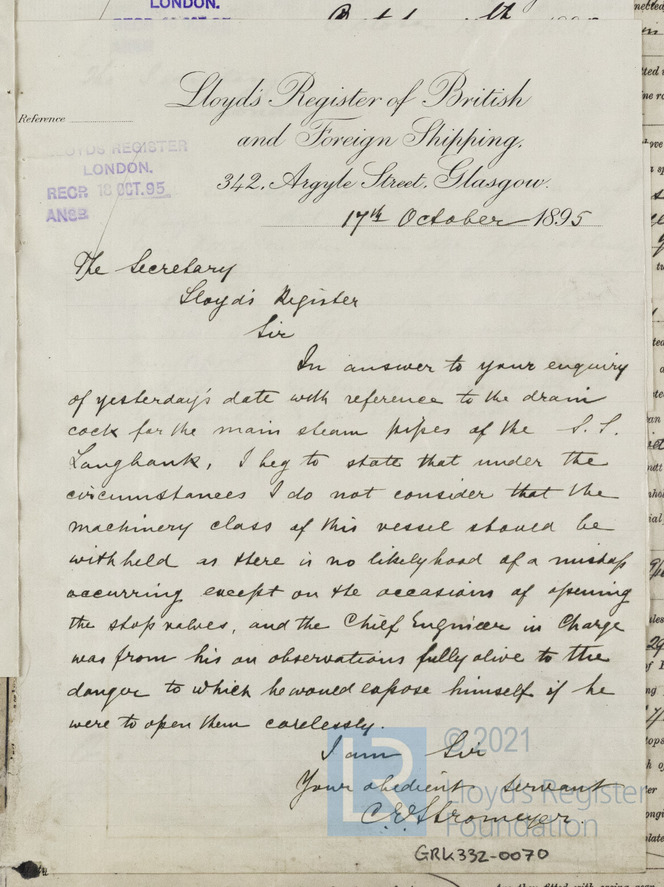 LONDON.
Lloyd's Register of British
and Foreign Shipping.
Reference
342, Argyle Street, Glasgow.
LLOYDS REGISTER
LONDON.
RECP. 18 OCT.95
ANSD
17th October 1895
The Secretary
Lloyd's Register
Sir
In answer to your enquiry
of yesterday's date with reference to the drain
cock for the main steam pipes of the S.S.
Langbank, I beg to state that under the
circumstances I do not consider that the
machinery class of this vessel should be
withheld as there is no likelyhood of a mishap
occurring except on the occasions of opening
the stop valves, and the Chief Engineer in Charge
was from his on observations fully alive to the
danger to which he would expose himself if he
were to open them carelessly.
I am Sir
Your obedient servant
C.E. Stromeyer.
© 2021
Lloyd's Register
Foundation
GRK332-0070